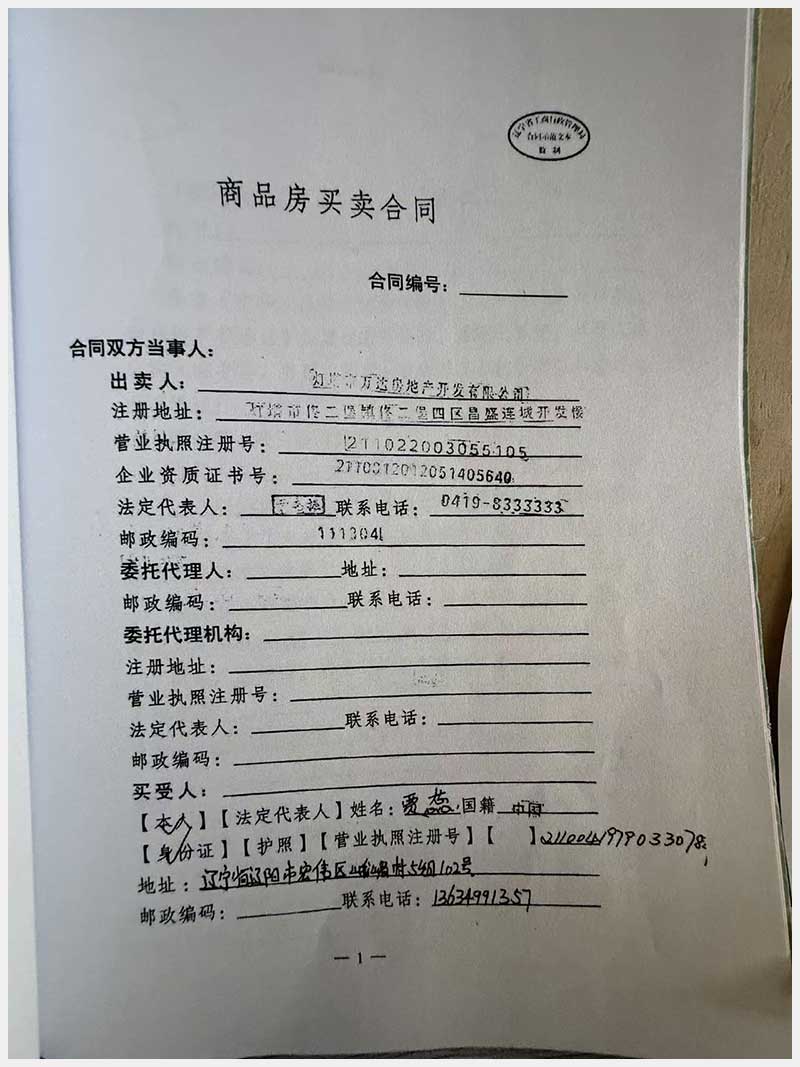 辽宁省工商行政管理局
合同示范文本
监制
商品房买卖合同
合同编号：
合同双方当事人：
出卖人：灯塔市万达房地产开发有限公司
注册地址：灯塔市佟二堡镇佟二堡四区昌盛连城开发楼
营业执照注册号：211022003055105
企业资质证书号：2110012012051405640
法定代表人：联系电话：0419-8333333
邮政编码：111304
委托代理人：地址：
邮政编码：联系电话：
委托代理机构：
注册地址：
营业执照注册号：
法定代表人：联系电话：
邮政编码：
买受人：
【本人】【法定代表人】姓名：贾蕊 国籍 中国
【身份证】【护照】【营业执照注册号】【 】
地址：辽宁省辽阳市宏伟区 54组102号
邮政编码：联系电话：13634991357
— 1 —